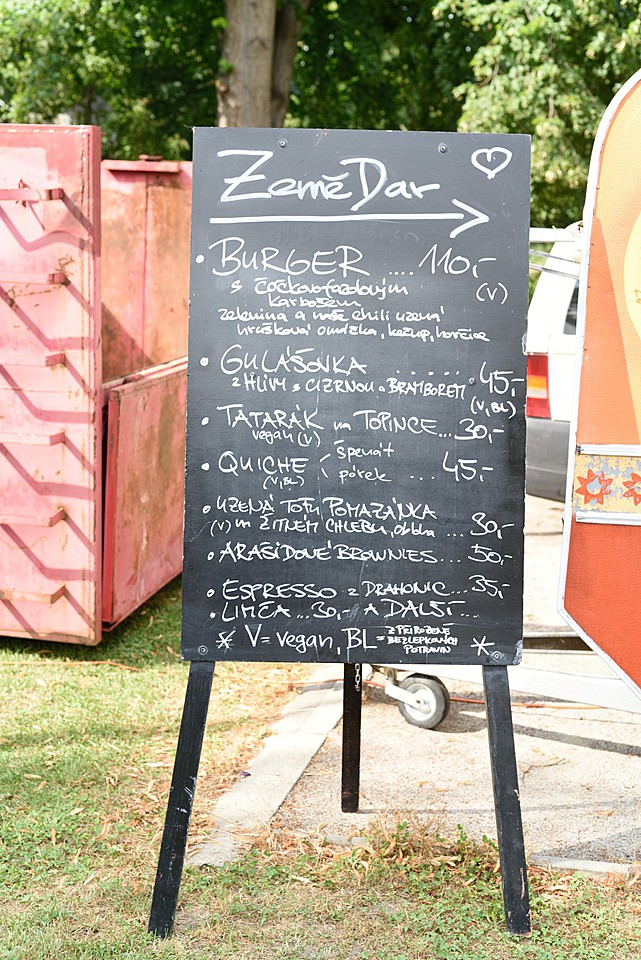 ZeměDar
BURGER .... 110,-
s čočkovofazolovým (V)
karbošem
zelenina a naše chilli uzená
hrušková omáčka, kečup, hořčice
GULÁŠOVKA ...... 45,-
z HLÍVY s CIZRNOU a BRAMBOREM (V, BL)
TATARÁK na TOPINCE... 30,-
vegan (V)
QUICHE špenát
(V, BL) pórek ... 45,-
UZENÁ TOFU POMAZÁNKA
(V) na ŽITNÉM CHLEBU, obloha ... 30,-
ARAŠÍDOVÉ BROWNIES... 50,-
ESPRESSO z DRAHONIC... 35,-
LIMČA ... 30,- A DALŠÍ...
* V = vegan, BL = Z PŘIROZENĚ BEZLEPKOVÝCH POTRAVIN *